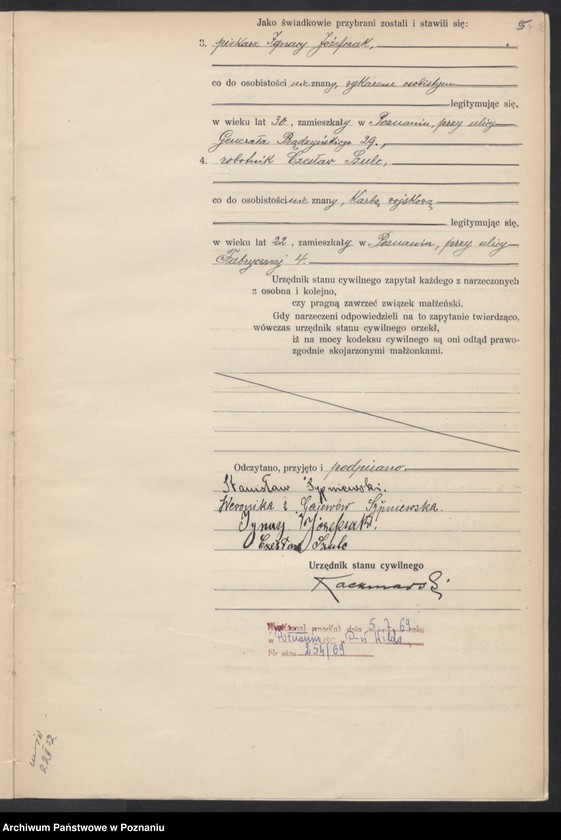 5
Jako świadkowie przybrani zostali i stawili się:
3. piekarz Ignacy Józefczak,
co do osobistości nie znany, wykazem osobistym
legitymując się,
w wieku lat 30, zamieszkały w Poznaniu, przy ulicy
Generała Prądzyńskiego 29.,
4. robotnik Czesław Szulc,
co do osobistości nie znany, Kartą wojskową
legitymując się,
w wieku lat 22, zamieszkały w Poznaniu, przy ulicy
Fabrycznej 4.
Urzędnik stanu cywilnego zapytał każdego z narzeczonych
z osobna i kolejno,
czy pragną zawrzeć związek małżeński.
Gdy narzeczeni odpowiedzieli na to zapytanie twierdząco,
wówczas urzędnik stanu cywilnego orzekł,
iż na mocy kodeksu cywilnego są oni odtąd prawo-
zgodnie skojarzonymi małżonkami.
Odczytano, przyjęto i podpisano.
Stanisław Sypniewski.
Weronika z Gajewów Sypniewska.
Ignacy Józefczak
Czesław Szulc
Urzędnik stanu cywilnego
Kaczmarski
zmarł(a) dnia 5.7.69 roku
w Poznaniu USC P-ń Wilda
Nr aktu 254/69
Archiwum Państwowe w Poznaniu